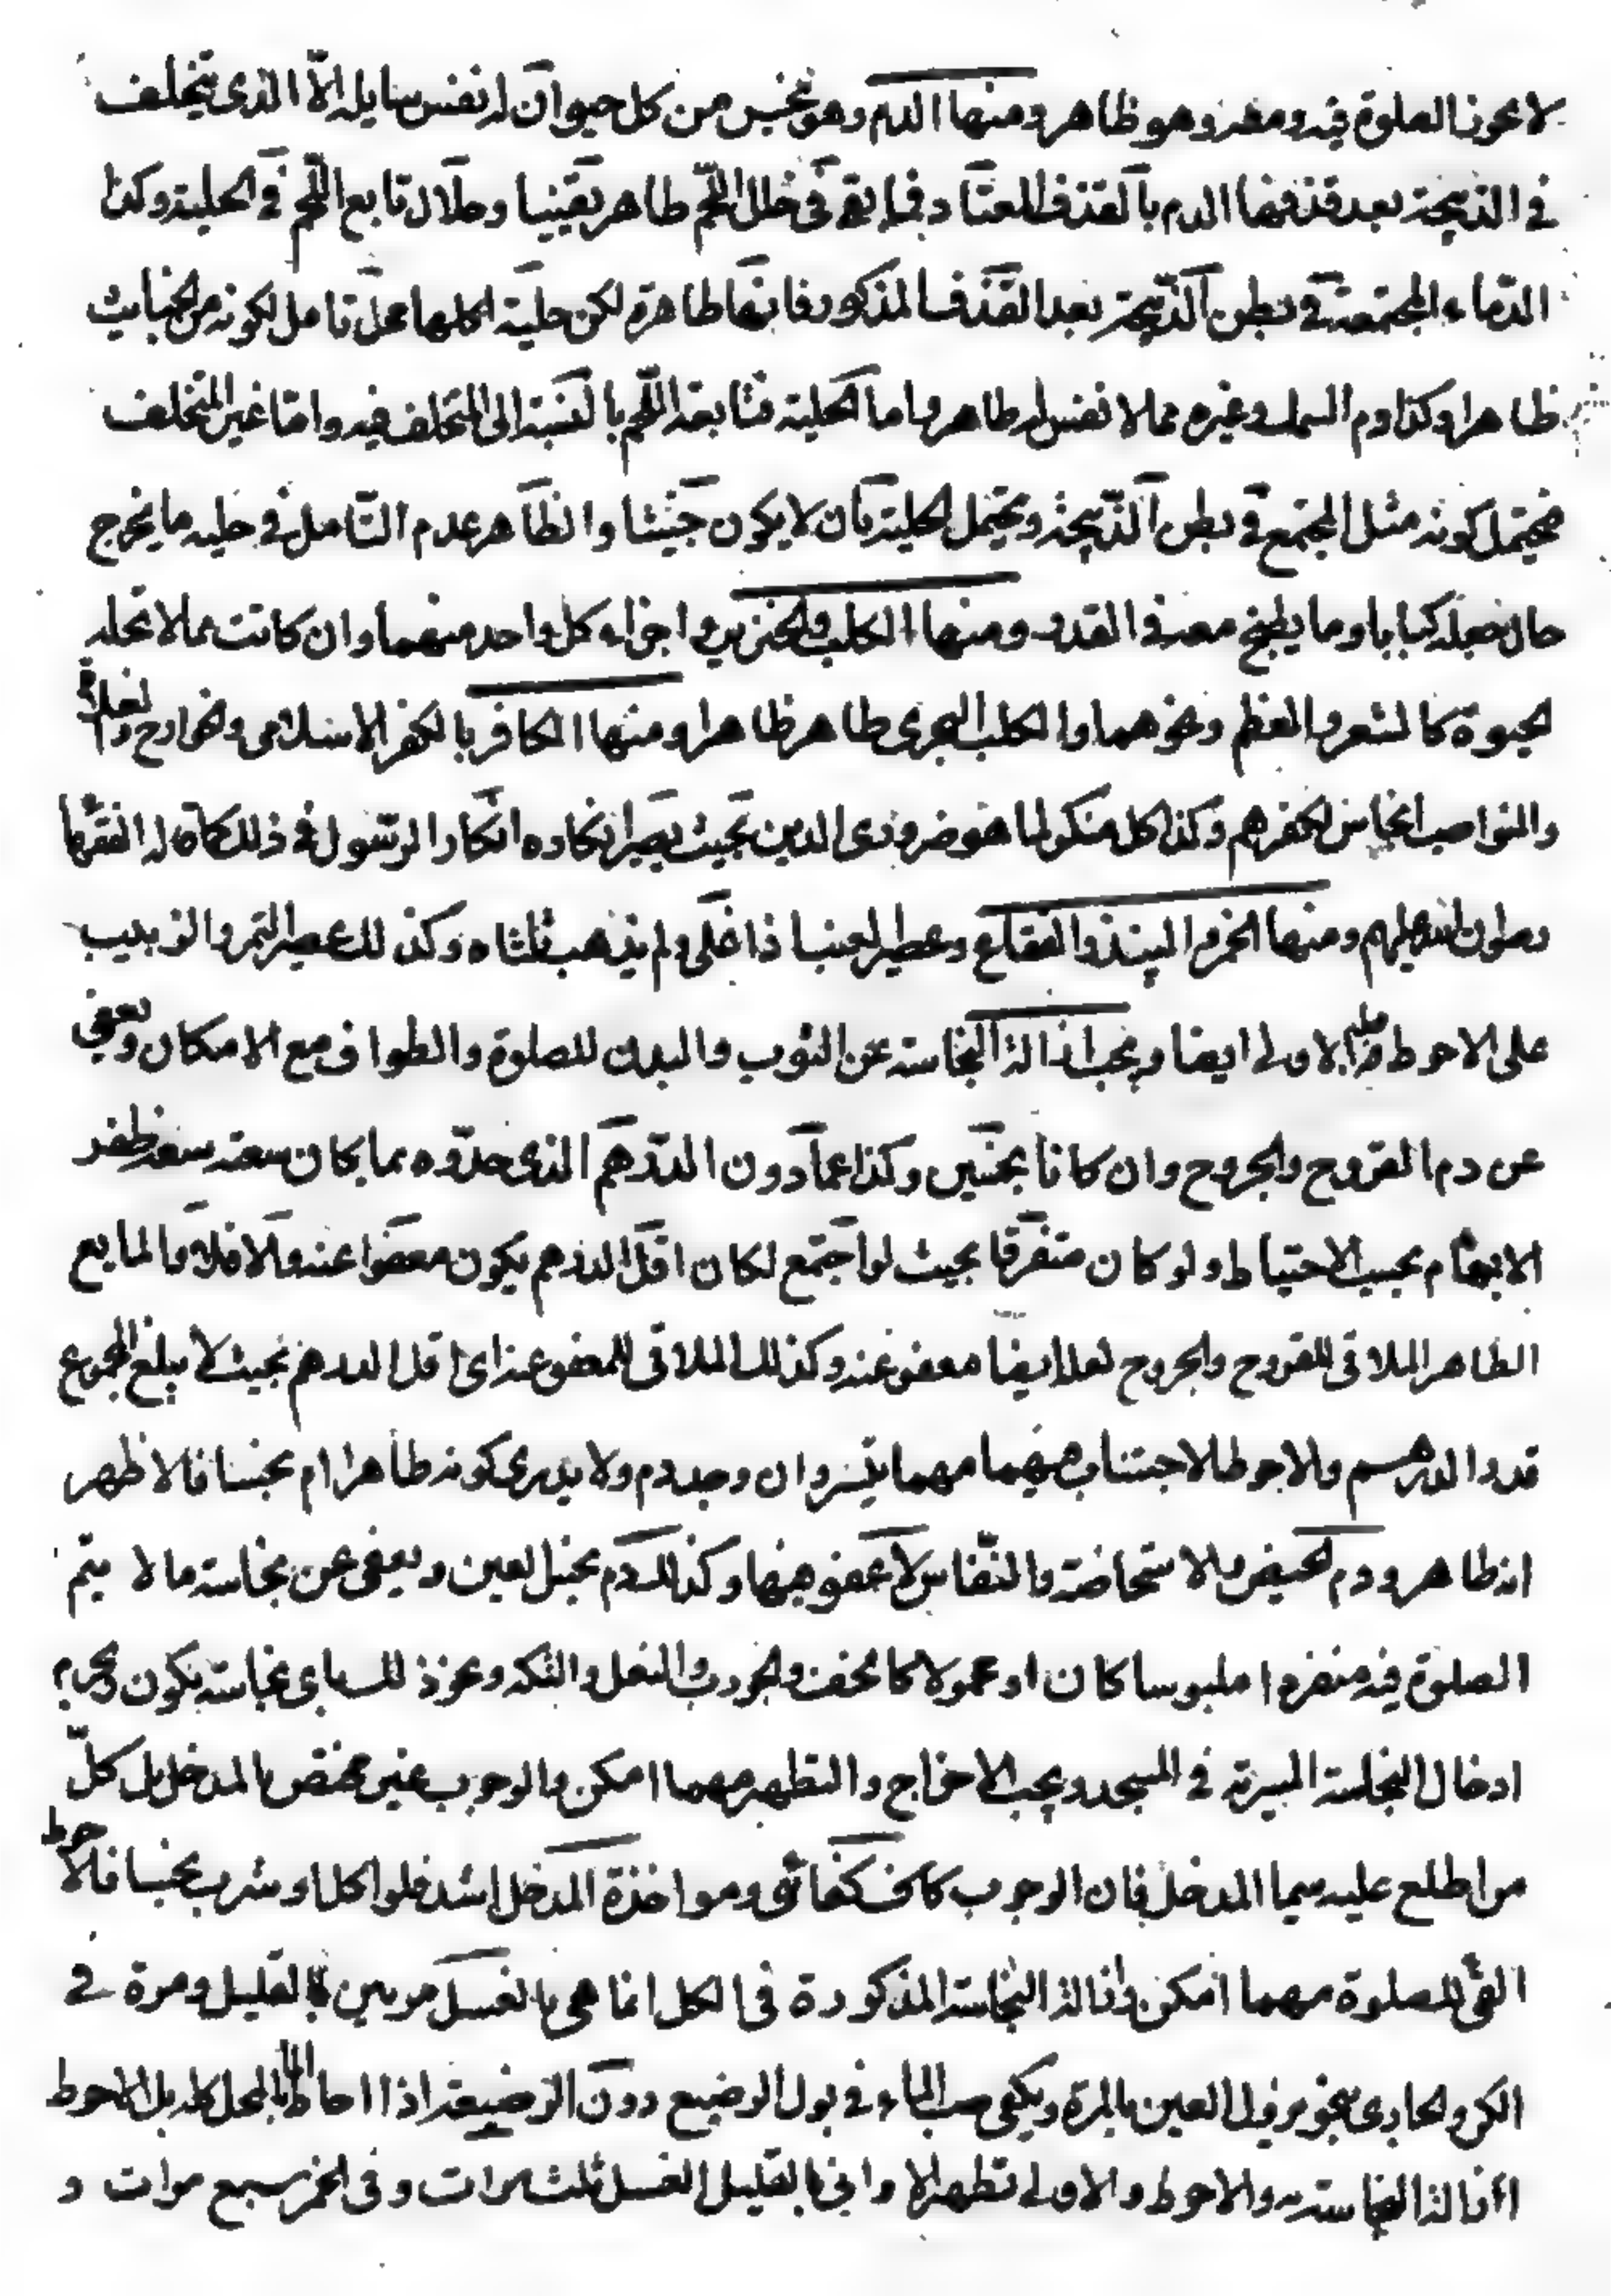 لا يجوز الصلوة فيه ومعه وهو ظاهر ومنها الدم وهو نجس من كل حيوان له نفس سايله الّا الذى يتخلف
في الذبيحة بعد قذفها الدم بالقذف المعتاد فما بقى في خلل اللحم طاهر يقينيا وحلال تابع اللحم في الحلية وكذا
الدّماء المجتمعة في بطن الذبيحة بعد القذف المذكور فانها طاهرة لكن حلية اكلها محل تامل لكونه من الخبايث
ظاهرا وكذا دم السمك وغيره مما لا نفس له طاهر واما الحلية فتابعة اللحم بالنسبة الى المتخلف فيه وامّا غير المتخلف
فيحتمل كونه مثل المجتمع في بطن الذّبيحة ويحتمل الحلية بان لا يكون خبيثا والظاهر عدم التّامل في حليه ما يخرج
حال جعله كبابا وما يطبخ معه في القدر ومنها الكلب والخنزير واجزاء كل واحد منهما وان كانت مما لا تحله
الحيوة كالشعر والعظم ونحوهما والكلب البحرى طاهر ظاهرا ومنها الكافر بالكفر الاسلامى والخوارج والغلاة
والنواصب انجاس لكفرهم وكذا كل منكر لما هو ضرورى الدين بحيث يصير انكاره انكار الرّسول في ذلك كما قاله الفقهاء
رضوان الله عليهم ومنها الخمر والنبيذ والفقاع وعصير العنب اذا غلى ولم يذهب ثلثاه وكذلك عصير التمر والزبيب
على الاحوط والاولى ايضا ويجب ازالة النجاسة عن الثوب والبدن للصلوة والطواف مع الامكان ويعفى
عن دم القروح والجروح وان كانا نجسين وكذا عمّا دون الدّرهم الذى حدّوه بما كان سعته سعة ظفر
الابهام بحسب الاحتياط ولو كان متفرقا بحيث لو اجتمع لكان اقل الدرهم يكون معفوا عنه والا فلا والمايع
الطاهر الملاقى للقروح والجروح لعله ايضا معفو عنه وكذلك الملاقى للمعفو عنه اى اقل الدرهم بحيث لا يبلغ المجموع
قدر الدرهم والاحوط الاجتناب فيهما مهما تيسر وان وجد دم ولا يدرى كونه طاهرا ام نجسا فالاظهر
انه طاهر ودم الحيض والاستحاضة والنّفاس لا عفو فيها وكذلك دم نجس العين ويعفى عن نجاسة ما لا يتم
الصلوة فيه منفردا ملبوسا كان او محمولا كالخف والجورب والنعل والتكة ونحو ذلك باى نجاسة يكون ويحرم
ادخال النجاسة المسرية في المسجد ويجب الاخراج والتطهير مهما امكن والوجوب غير مختص بالمدخل بل كلّ
من اطلع عليه سيما المدخل فان الوجوب كان كفائى ومواخذة المدخل اشد فلو اكل او شرب نجسا فالاحوط
القئ للصلوة مهما امكن وازالة النجاسة المذكورة فى الكل انما هى بالغسل مرتين بالقليل ومرة في
الكر والجارى بنحو يزول العين بالمرة ويكفى صب الماء في بول الرضيع دون الرضيعة اذا احاط الماء بالمحل كله بل الاحوط
ازالة النجاسة والاحوط والاولى تطهير الاوانى بالقليل الغسل ثلث مرات وفى الخمر سبع مرات و